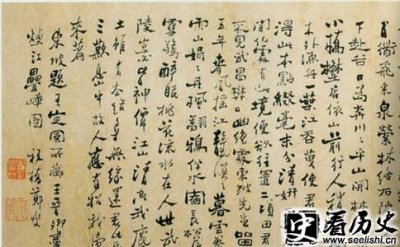 百道飛來泉縈林絡石隱
下赴谷口為奔川川平山開林
小橋野店依山前行人稍度喬
木外漁舟一葉江吞天使君何從
得此本點綴毫末分清妍不知人
間何處有此境便欲往置二頃田君
不見武昌樊口幽絕處東坡先生留
五年春風搖江天漠漠暮雲卷
雨山娟娟丹楓翻鴉伴水宿長松落
雪驚醉眠桃花流水在人世武
陵豈必皆神仙江山清空我塵
土雖有去路尋無緣還君此畫
三歎息山中故人應有招我歸
來篇
東坡題王定國所藏王晉卿畫
煙江疊嶂圖 板橋鄭燮
看历史
www.seelishi.cn